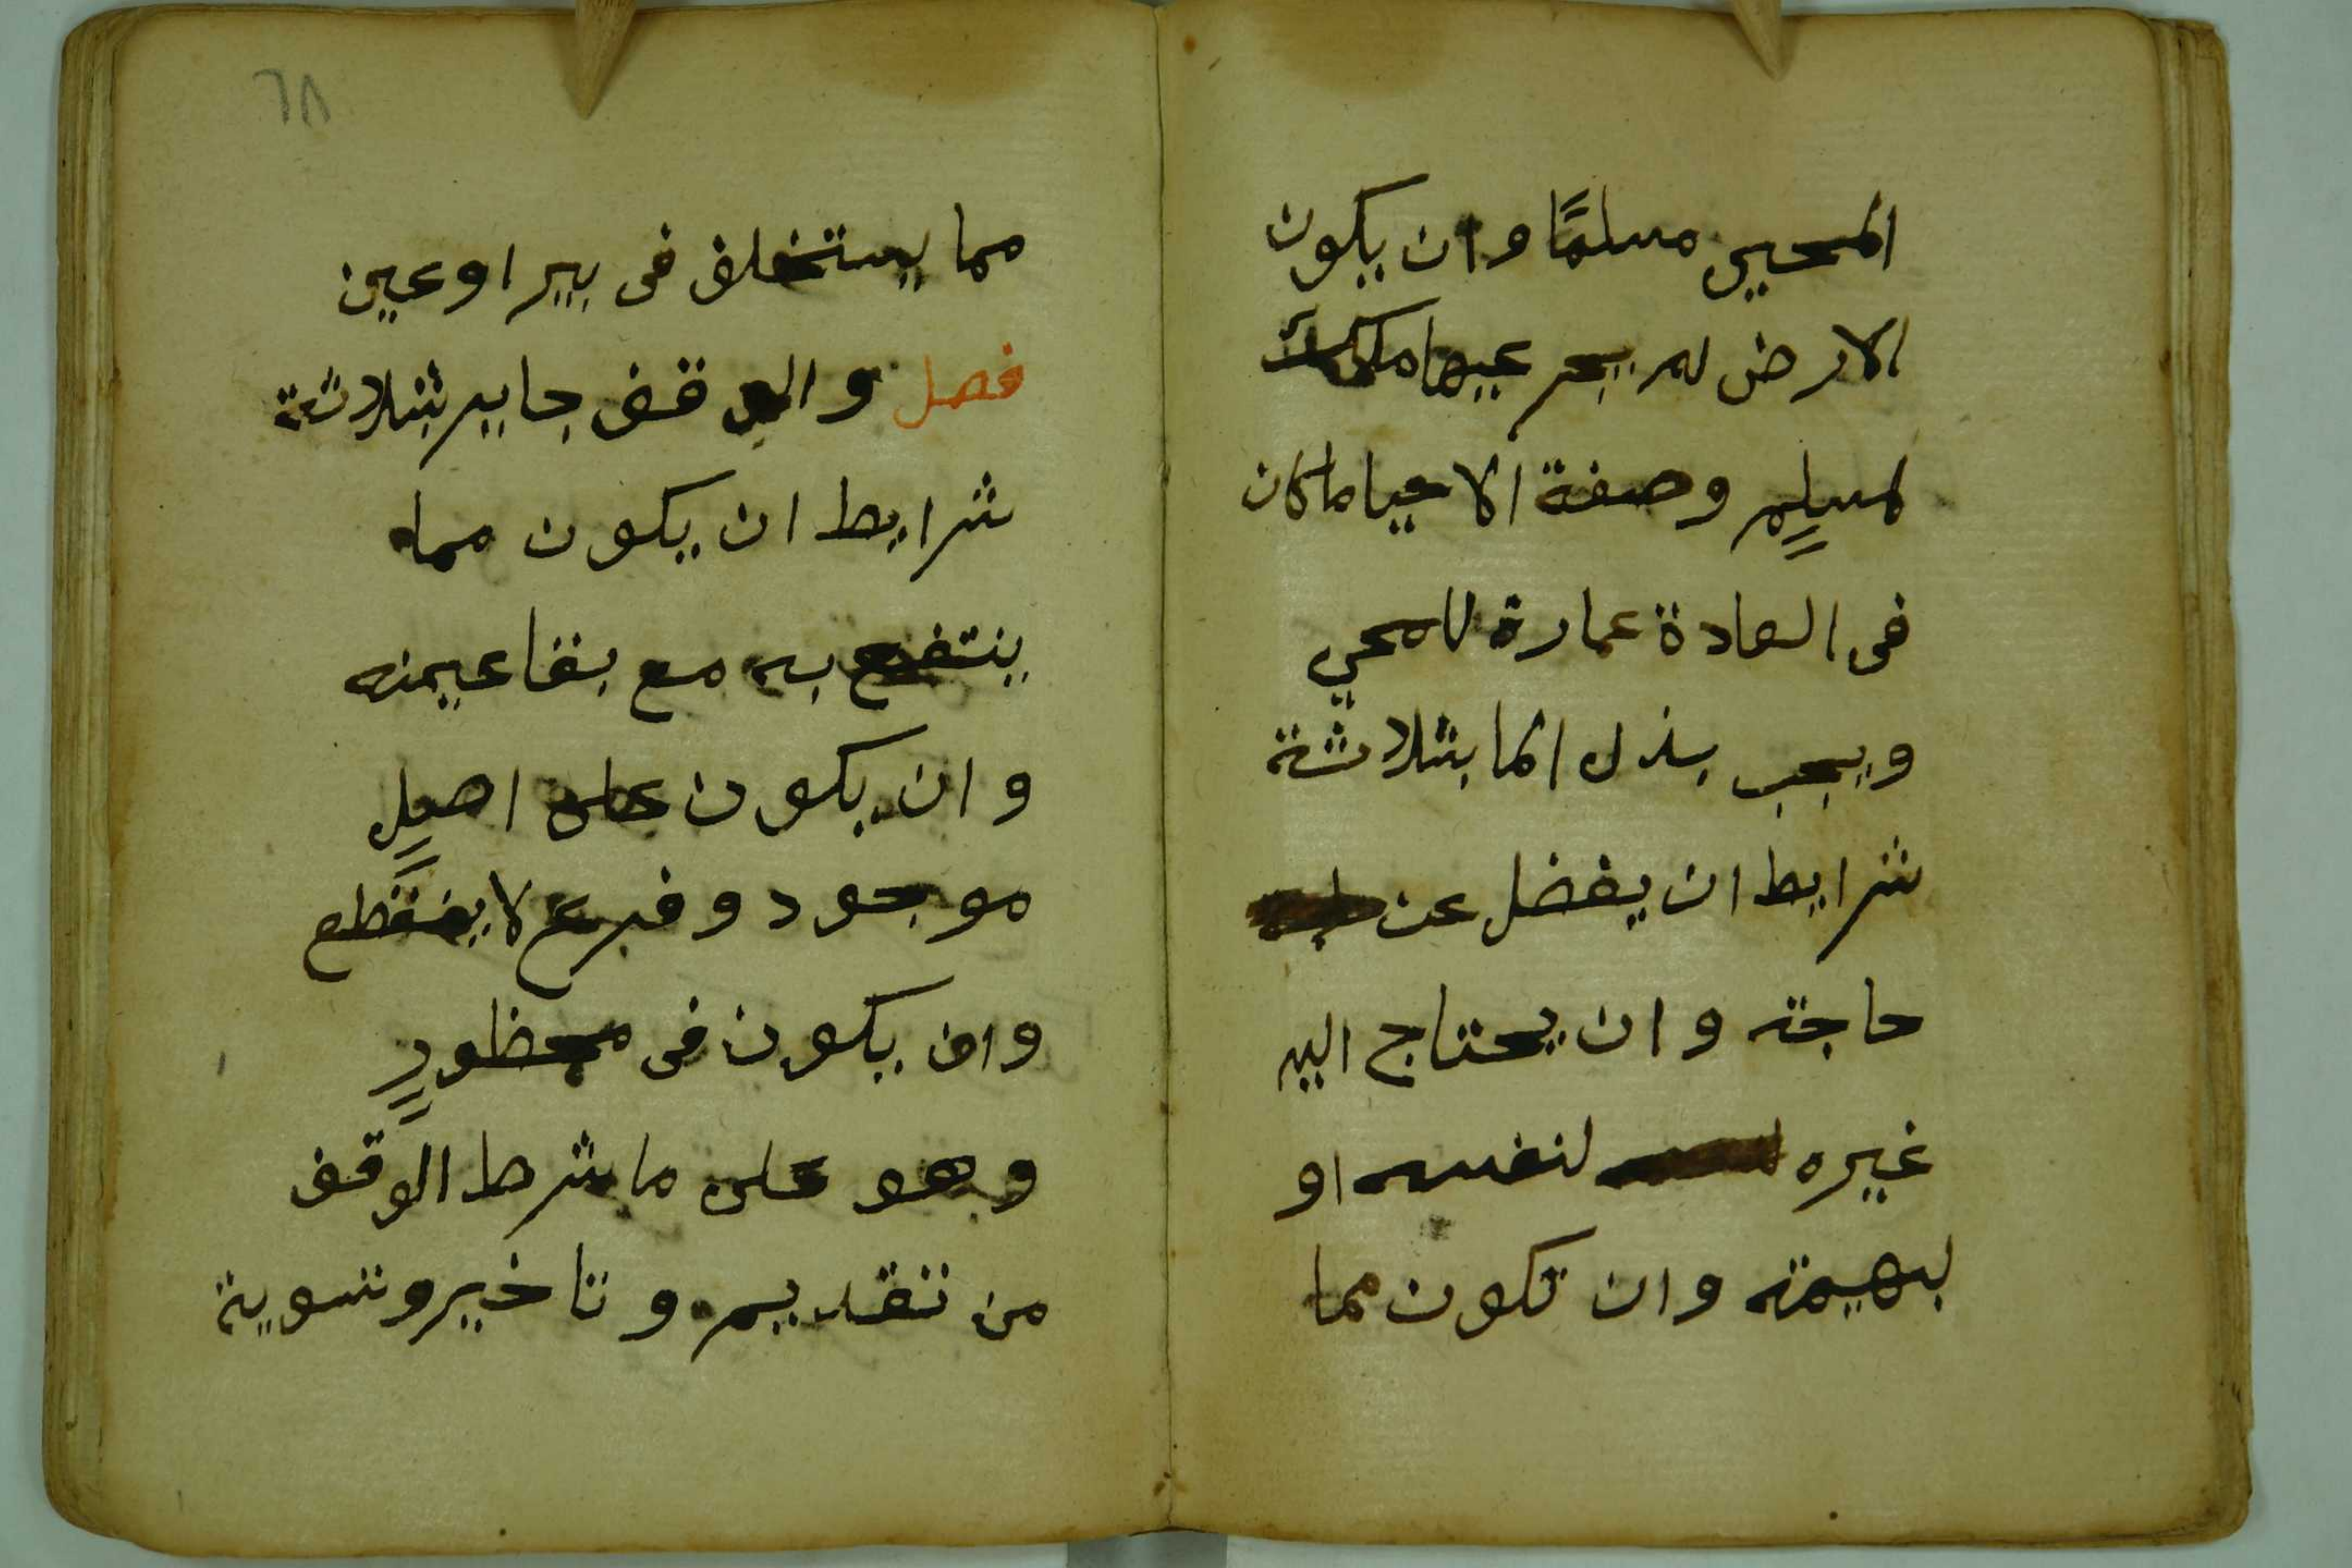 المحيي مسلمًا وان يكون
الارض لم يجر عيها ملك
لمسلمٍ وصفة الاحيا ماكان
فى العادة عمارة للمحيي
ويجب بذل الما بثلاثة
شرايط ان يفضل عن
حاجته وان يحتاج اليه
غيره لنفسه او
لبهيمته وان تكون مما
٦٨
مما يستخلق فى بير اوعين
فصل والوقف جايز بثلاثة
شرايط ان يكون مما
ينتفع به مع بقا عينه
وان يكون على اصلٍ
موجود وفرع لا ينقطع
وان يكون فى محظورٍ
وهو على ما شرط الوقف
من تقديم وتاخير وتسوية